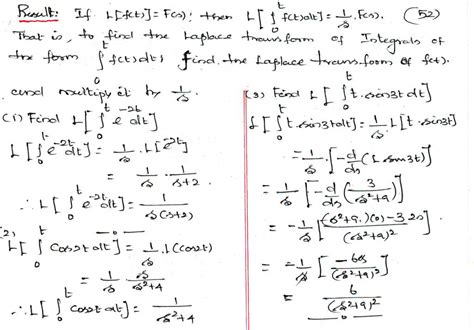 Result: If L[f(t)] = F(s); then L[∫₀ᵗ f(t)dt] = 1/s . F(s). (52)
That is, to find the Laplace transform of Integrals of
the form ∫₀ᵗ f(t)dt, find the Laplace transform of f(t).
and multiply it by 1/s.
(1) Find L[∫₀ᵗ e^-2t dt]
L[∫₀ᵗ e^-2t dt] = 1/s . L[e^-2t]
= 1/s . 1/s+2
∴ L[∫₀ᵗ e^-2t dt] = 1/s(s+2)
(2)
L[∫₀ᵗ cos2t dt] = 1/s . L(cos2t)
= 1/s s/s²+4
∴ L[∫₀ᵗ cos2t dt] = 1/s²+4
(3) Find L[∫₀ᵗ t.sin3t dt]
L[∫₀ᵗ t.sin3t dt] = 1/s . L[t.sin3t]
= 1/s . [-d/ds (L sin3t)]
= 1/s [-d/ds (3/s²+9)]
= -1/s [(s²+9.)(0)-3.2s/(s²+9)²]
= -1/s [-6s/(s²+9)²]
= 6/(s²+9)²